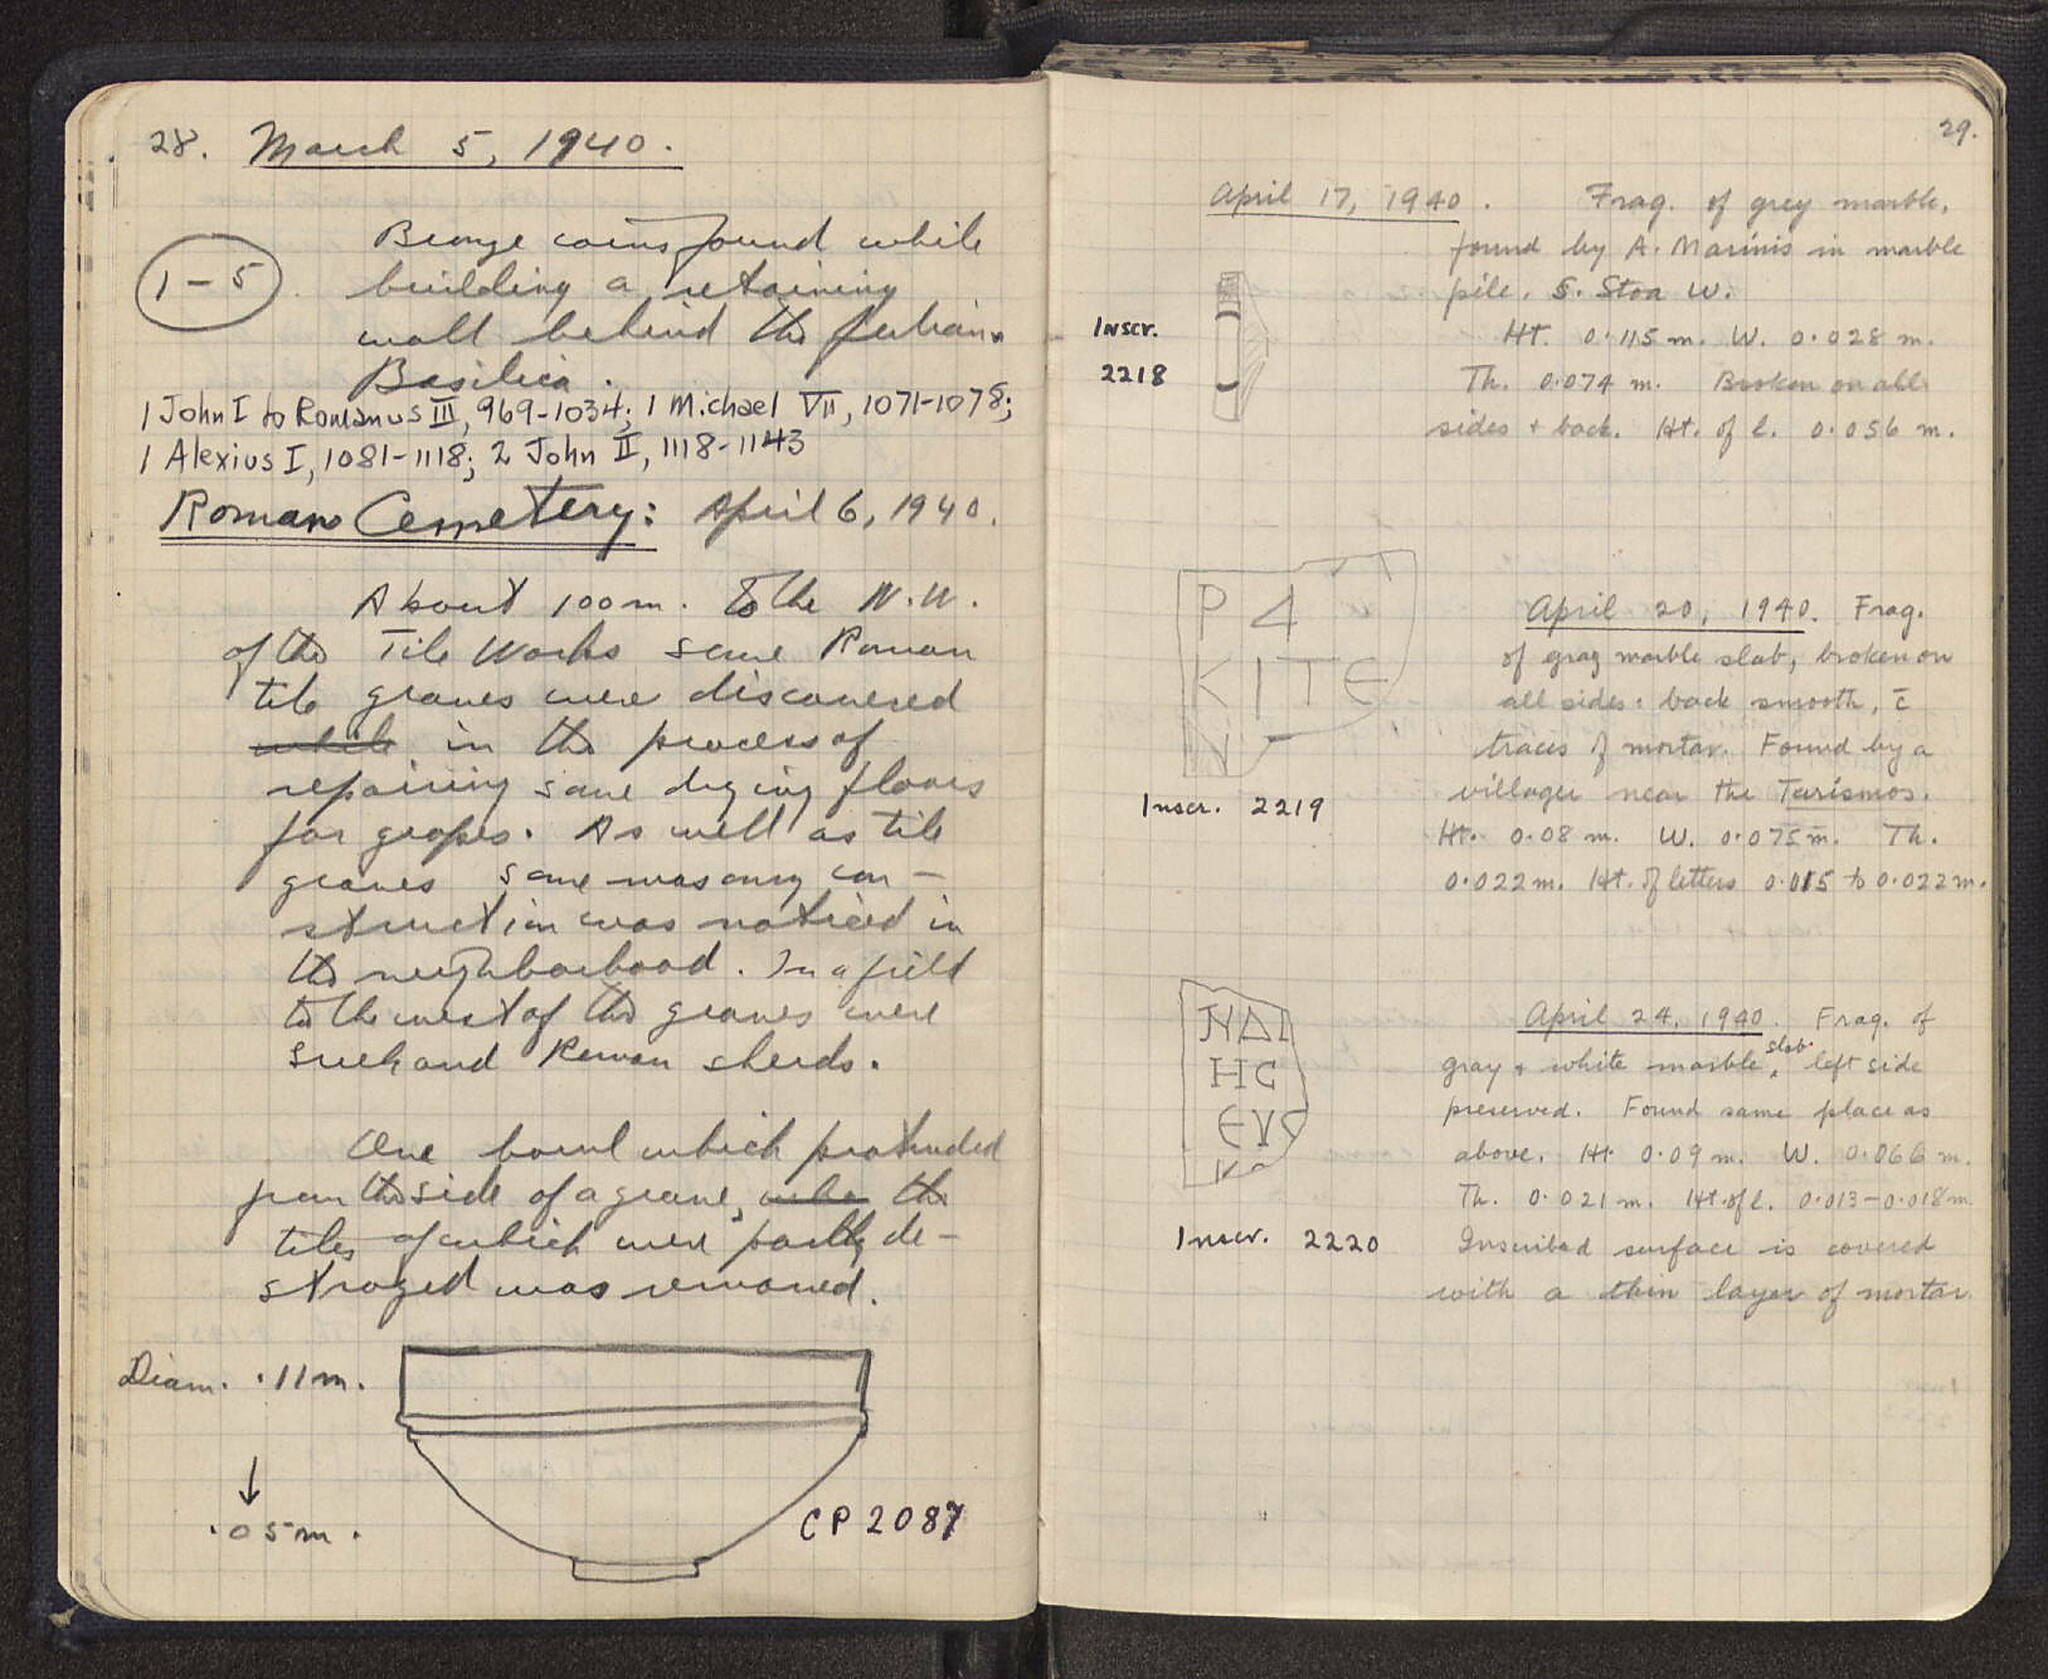 28. March 5, 1940.
1-5
Bronze coins found while
building a retaining
wall behind the Julian
Basilica.
1 John I to Romanus III, 969-1034; 1 Michael VII, 1071-1078;
1 Alexius I, 1081-1118; 2 John II, 1118-1143
Roman Cemetery: April 6, 1940.
About 100 m. to the N.W.
of the Tile Works some Roman
tile graves were discovered
while in the process of
repairing some drying floors
for grapes. As well as tile
graves some masonry con-
struction was noticed in
the neighborhood. In a field
to the west of the graves were
Greek and Roman sherds.
One bowl which protruded
from the side of a grave, the
tiles of which were partly de-
stroyed was removed.
Diam. .11 m.
.05 m.
CP 2087
29.
April 17, 1940. Frag. of grey marble,
found by A. Marinis in marble
pile. S. Stoa W.
Ht. 0.115 m. W. 0.028 m.
Th. 0.074 m. Broken on all
sides + back. Ht. of l. 0.056 m.
Inscr.
2218
KITE
N
April 20, 1940. Frag.
of gray marble slab, broken on
all sides: back smooth, c̄
traces of mortar. Found by a
villager near the Turismos.
Ht. 0.08 m. W. 0.075 m. Th.
0.022 m. Ht. of letters 0.015 to 0.022 m.
Inscr. 2219
HC
EVC
April 24, 1940. Frag. of
gray + white marble slab. left side
preserved. Found same place as
above. Ht. 0.09 m. W. 0.066 m.
Th. 0.021 m. Ht. of l. 0.013-0.018 m.
Inscribed surface is covered
with a thin layer of mortar.
Inscr. 2220